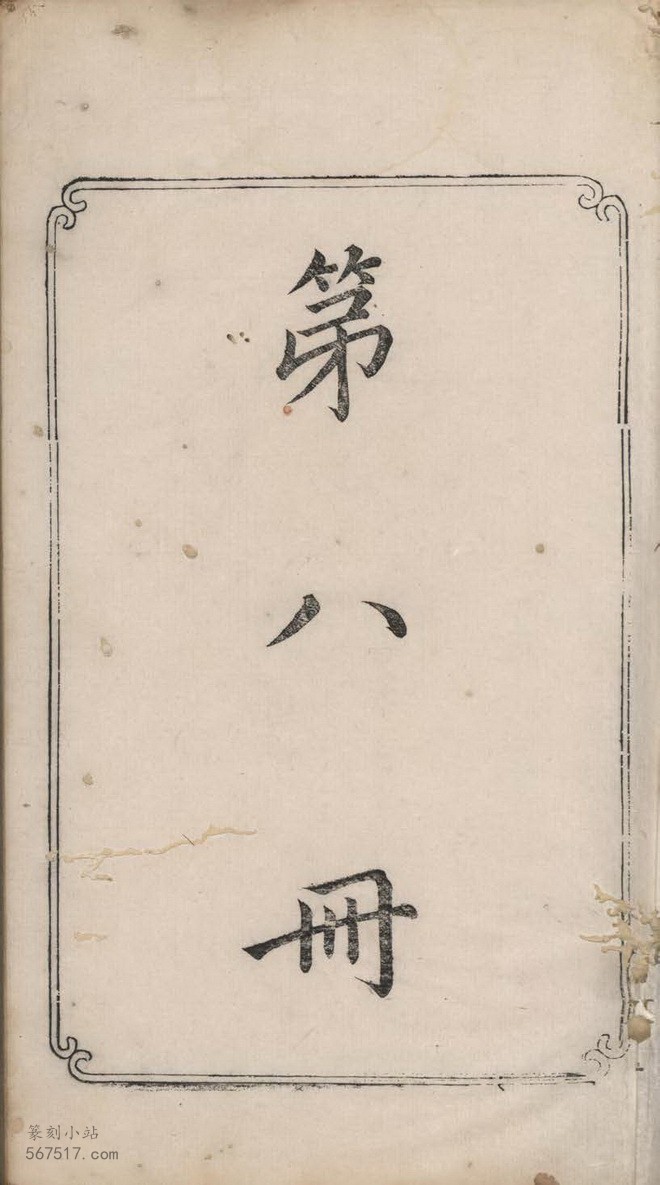 第
八
冊
篆刻小站
567517.com